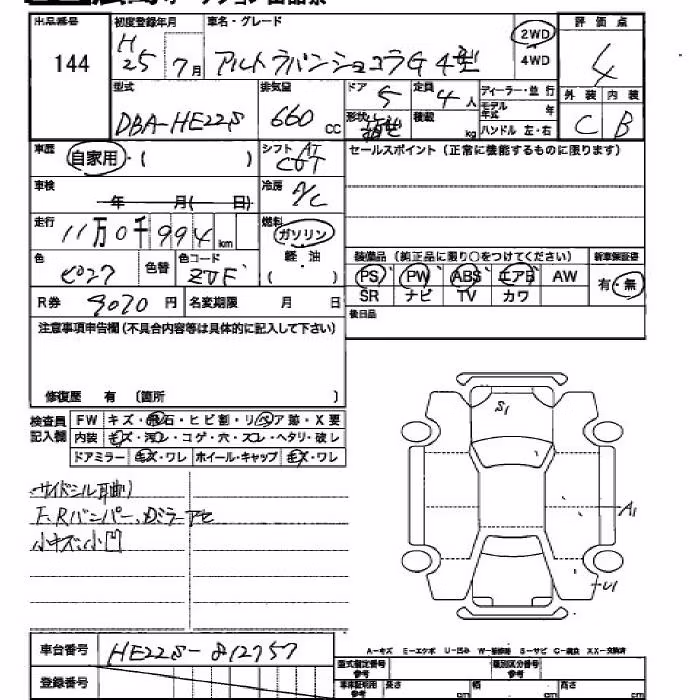 出品番号 初度登録年月 車名・グレード 評価点
144 H25 7月 アルトラパンショコラG 4型 2WD 4WD 4
型式 排気量 ドア 5 定員 4人 ディーラー・並行 外装 内装
DBA-HE22S 660 cc 形状 積載 kg モデル年式 年 C B
ハンドル 左・右
車歴 自家用・( ) シフト AT セールスポイント(正常に機能するものに限ります)
車検 年 月( 日) 冷房 A/C
走行 11万0千994km 燃料 ガソリン
軽油
( )
色 色替 色コード ZJF 装備品(純正品に限り○をつけてください) 新車保証書
PS PW ABS エアB AW 有・無
R券 9070円 名変期限 月 日 SR ナビ TV カワ
注意事項申告欄(不具合内容等は具体的に記入して下さい) 後日品
修復歴 有 (箇所 )
検査員記入欄 FW キズ・飛石・ヒビ割・リペア跡・X要
内装 キズ・汚レ・コゲ・穴・スレ・ヘタリ・破レ
ドアミラー キズ・ワレ ホイール・キャップ キズ・ワレ
S1
サイドシル耳曲り
F、Rバンパー、
A1
小キズ、小凹
U1
車台番号 HE22S-812757
A-キズ E-エクボ U-凹み
S-サビ C-腐食 XX-交換済
登録番号 型式指定番号 参考 類別区分番号 参考
長さ cm 幅 cm 高さ cm